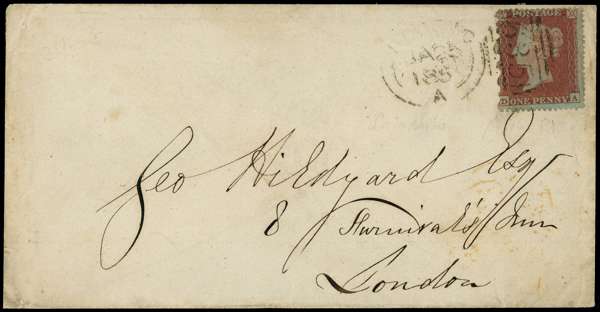 POSTAGE
ONE PENNY
JA
185
A
Geo Hildyard Esq
8 Furnival's Inn
London